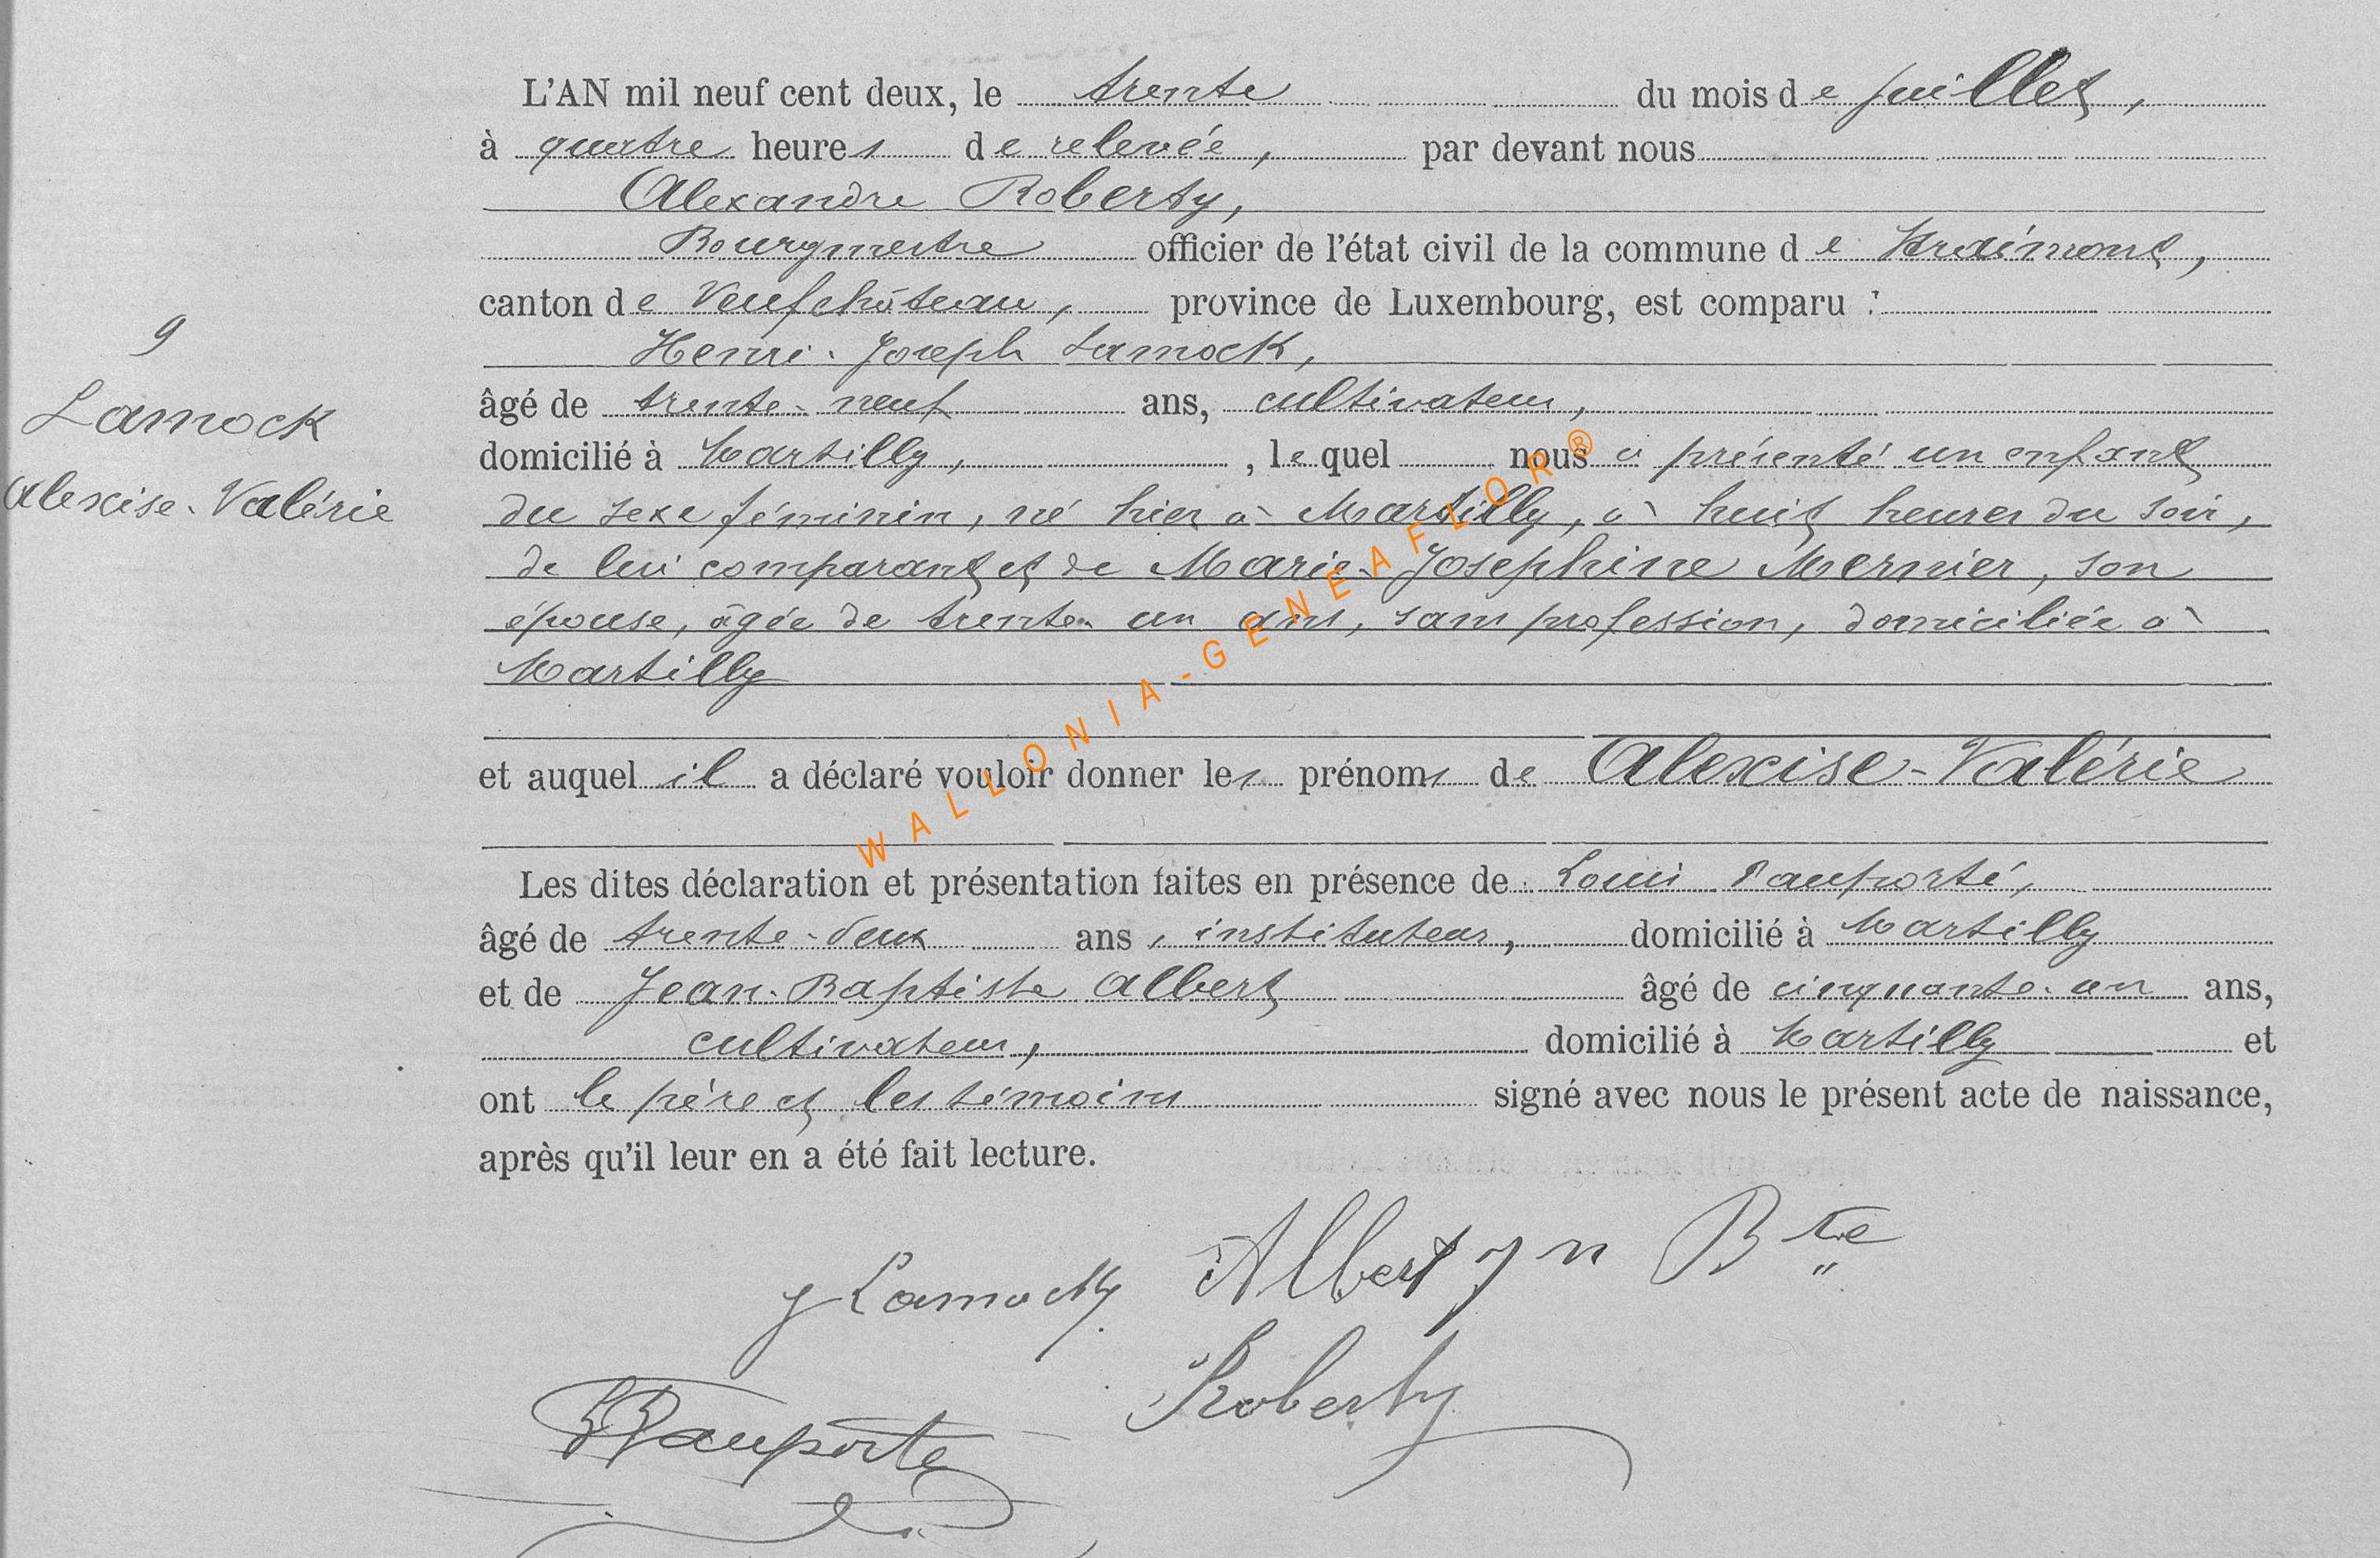 L'AN mil neuf cent deux, le trente du mois de juillet,
à quatre heures de relevée, par devant nous
Alexandre Roberty,
Bourgmestre officier de l'état civil de la commune de Straimont,
canton de Neufchâteau, province de Luxembourg, est comparu :
Henri-Joseph Lamock,
9
âgé de trente-neuf ans, cultivateur,
Lamock
domicilié à Martilly, , lequel nous a présenté un enfant
Alexise-Valérie
du sexe féminin, né hier à Martilly, à huit heures du soir,
de lui comparant et de Marie-Josephine Mernier, son
épouse, âgée de trente-un ans, sans profession, domiciliée à
Martilly
et auquel il a déclaré vouloir donner les prénoms de Alexise-Valérie
Les dites déclaration et présentation faites en présence de Louis Pauporté,
âgé de trente-deux ans, instituteur, domicilié à Martilly
et de Jean-Baptiste Albert âgé de cinquante-un ans,
cultivateur, domicilié à Martilly et
ont le père et les témoins signé avec nous le présent acte de naissance,
après qu'il leur en a été fait lecture.
J Lamock Albert Jn Bte
Roberty
LPauporté
WALLONIA-GENEAFLOR®